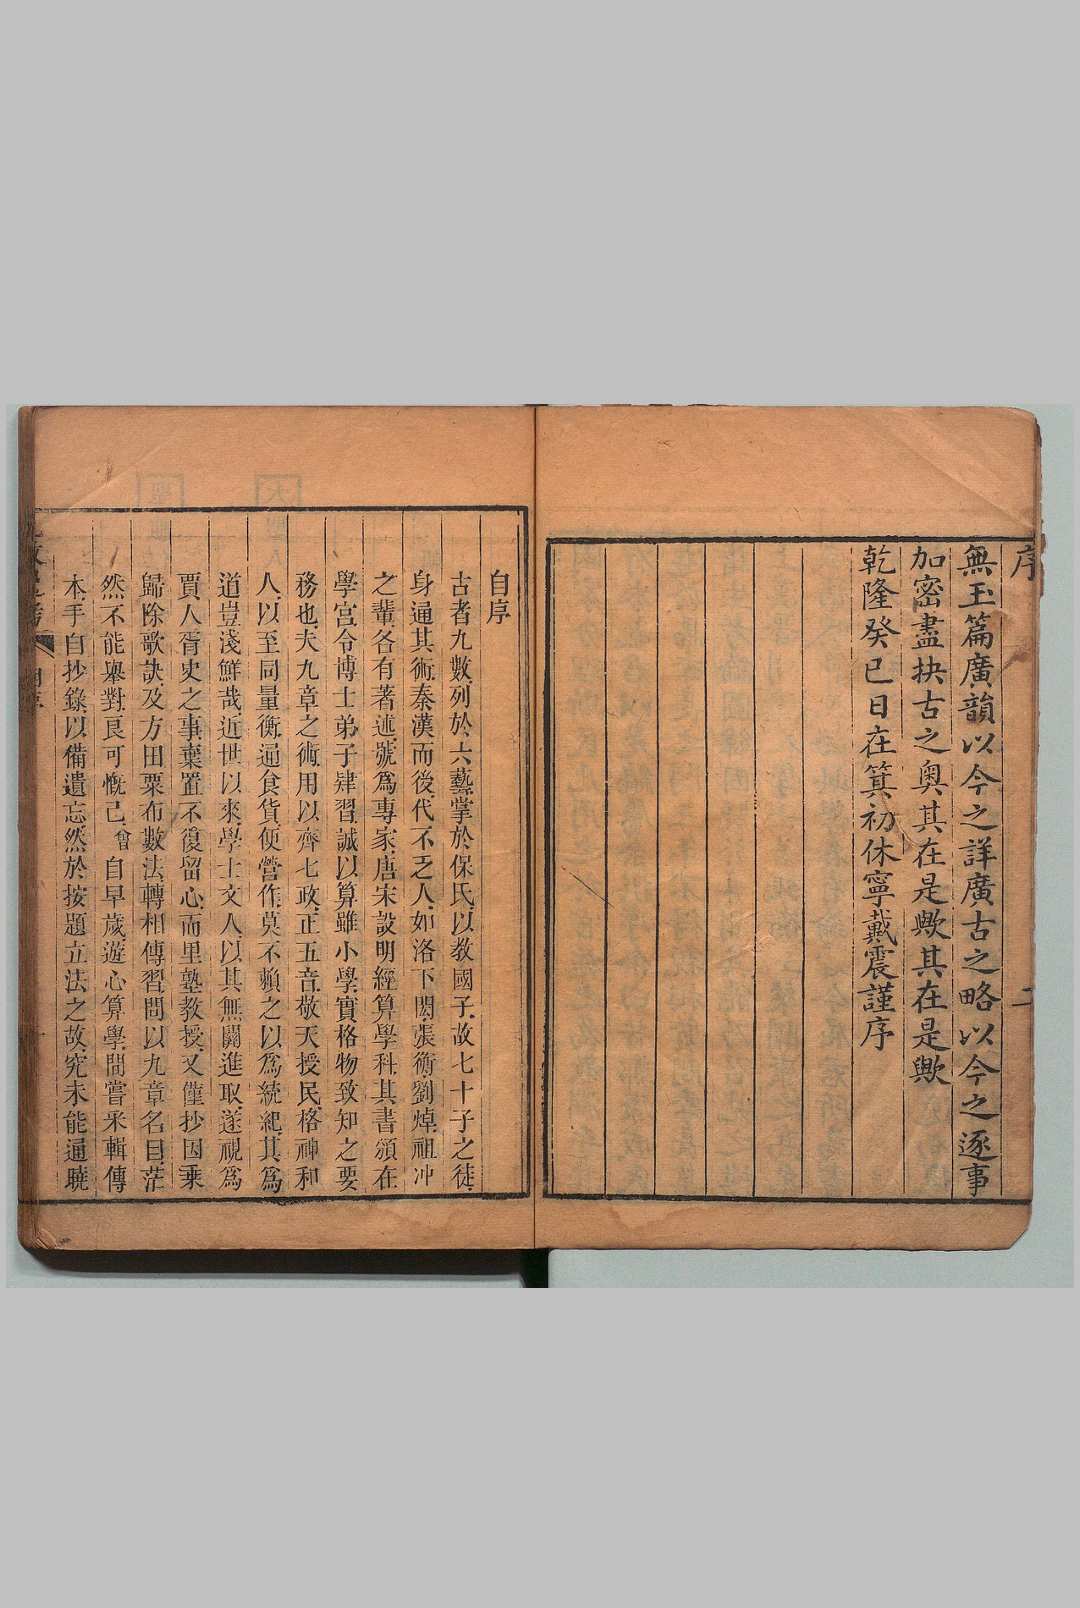 序
無玉篇廣韻以今之詳廣古之略以今之逐事
加密盡抉古之奧其在是歟其在是歟
乾隆癸巳日在箕初休寧戴震謹序
自序
古者九數列於六藝掌於保氏以教國子故七十子之徒
身通其術秦漢而後代不乏人如洛下閎張衡劉焯祖冲
之輩各有著述號為專家唐宋設明經算學科其書頒在
學宮令博士弟子肄習誠以算雖小學實格物致知之要
務也夫九章之術用以齊七政正五音敬天授民格神和
人以至同量衡通食貨便營作莫不賴之以為統紀其為
道豈淺鮮哉近世以來學士文人以其無關進取遂視為
賈人胥史之事棄置不復留心而里塾教授又僅抄因乘
歸除歌訣及方田粟布數法轉相傳習問以九章名目茫
然不能舉對良可慨已曾自早歲遊心算學間嘗采輯傳
本手自抄錄以備遺忘然於按題立法之故究未能通曉